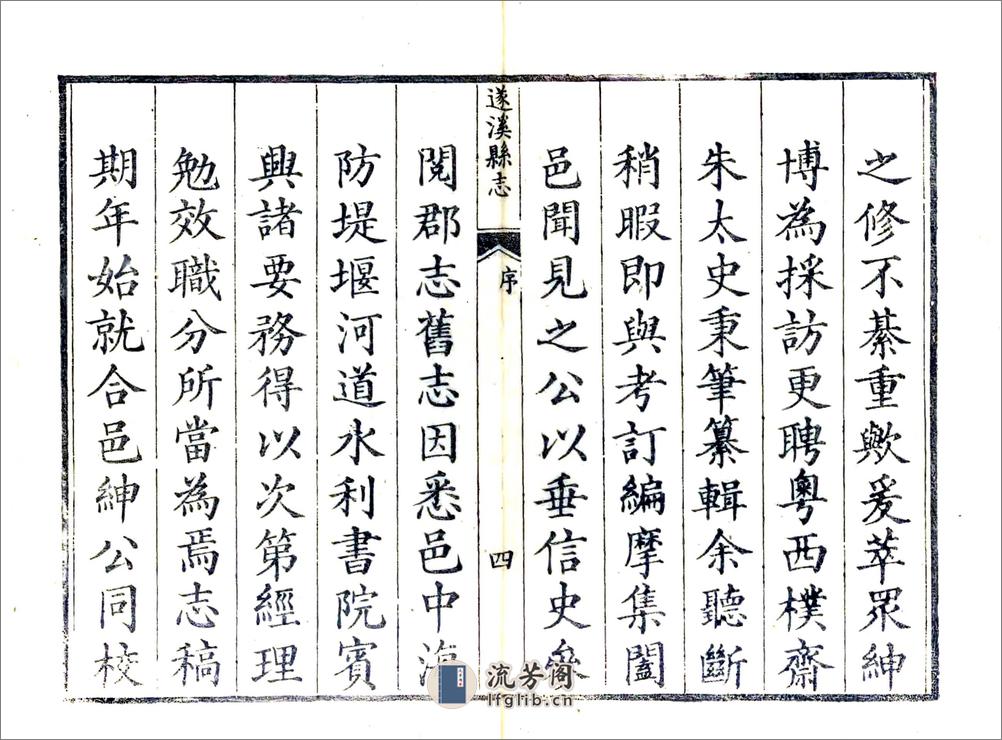 之修不綦重歟爰萃眾紳
博為採訪更聘粵西樸齋
朱太史秉筆纂輯余聽斷
稍暇即與考訂編摩集闔
邑聞見之公以垂信史叅
遂溪縣志
序
四
閱郡志舊志因悉邑中海
防堤堰河道水利書院賓
興諸要務得以次第經理
勉效職分所當為焉志稿
期年始就合邑紳公同校
流芳阁
lfglib.cn